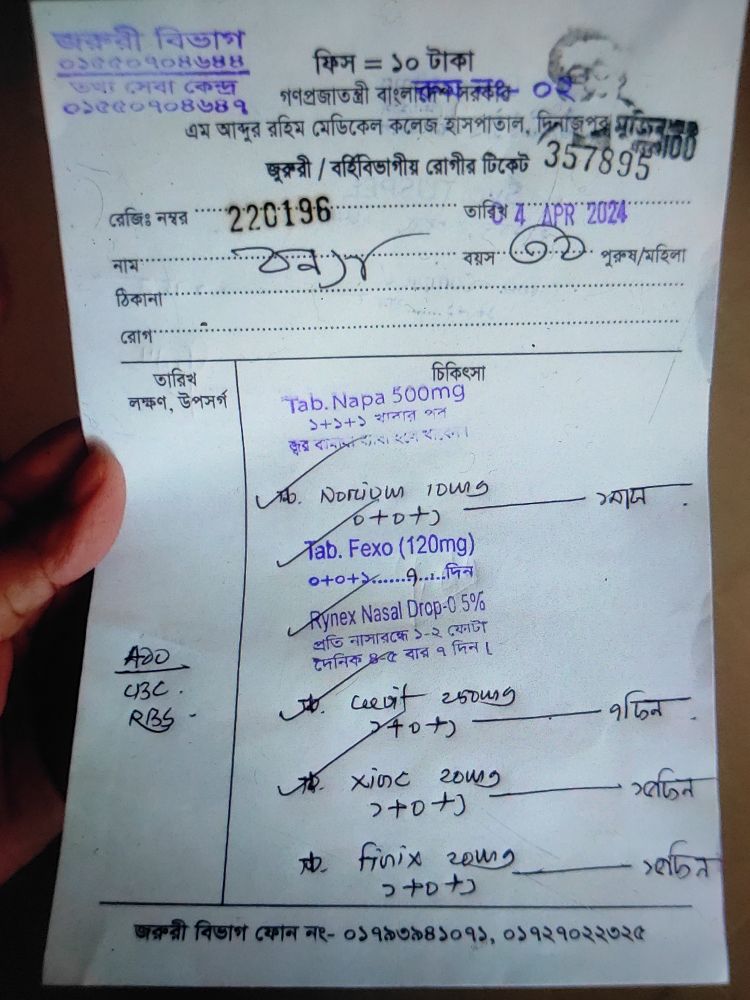 জরুরী বিভাগ
০১৫৫০৭০৪৬৪৪
তথ্য সেবা কেন্দ্র
০১৫৫০৭০৪৬৪৭
ফিস = ১০ টাকা
গণপ্রজাতন্ত্রী বাংলাদেশ সরকার
নং- ০২
এম আব্দুর রহিম মেডিকেল কলেজ হাসপাতাল, দিনাজপুর
মুজিব
100
জরুরী / বহির্বিভাগীয় রোগীর টিকেট 357895
রেজিঃ নম্বর 220196 তারিখ 04 APR 2024
নাম বয়স পুরুষ/মহিলা
ঠিকানা
রোগ
তারিখ
লক্ষণ, উপসর্গ
চিকিৎসা
Tab. Napa 500mg
১+১+১ খাবার পর
Tab. Nortium 10mg
0+0+১
Tab. Fexo (120mg)
০+০+১......৭......দিন
Rynex Nasal Drop-0.5%
প্রতি নাসারন্ধ্রে ১-২ ফোটা
দৈনিক ৪-৫ বার ৭ দিন।
CBC.
RBS
Tab. Ceevit 250mg
১+0+১ ৭দিন
Tab. Xinc 20mg
১+0+১ ১৫দিন
Tab. Finix 20mg
১+0+১ ১৫দিন
জরুরী বিভাগ ফোন নং- ০১৭৯৩৯৪১০৭১, ০১৭২৭০২২৩২৫